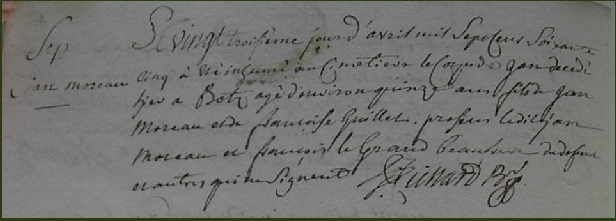 Sep
jan moreau
Le vingt troisieme jour d'avril mil sept cens Soixante
cinq a été inhumé au Cimetiere le Corps de jan decedé
hier a Botz agé d'environ quinze ans fils de jan
Moreau et de francoise Guillet. presens ledit jan
Moreau et francois le Grand beaufrere du defunt
et autres qui ne Signent